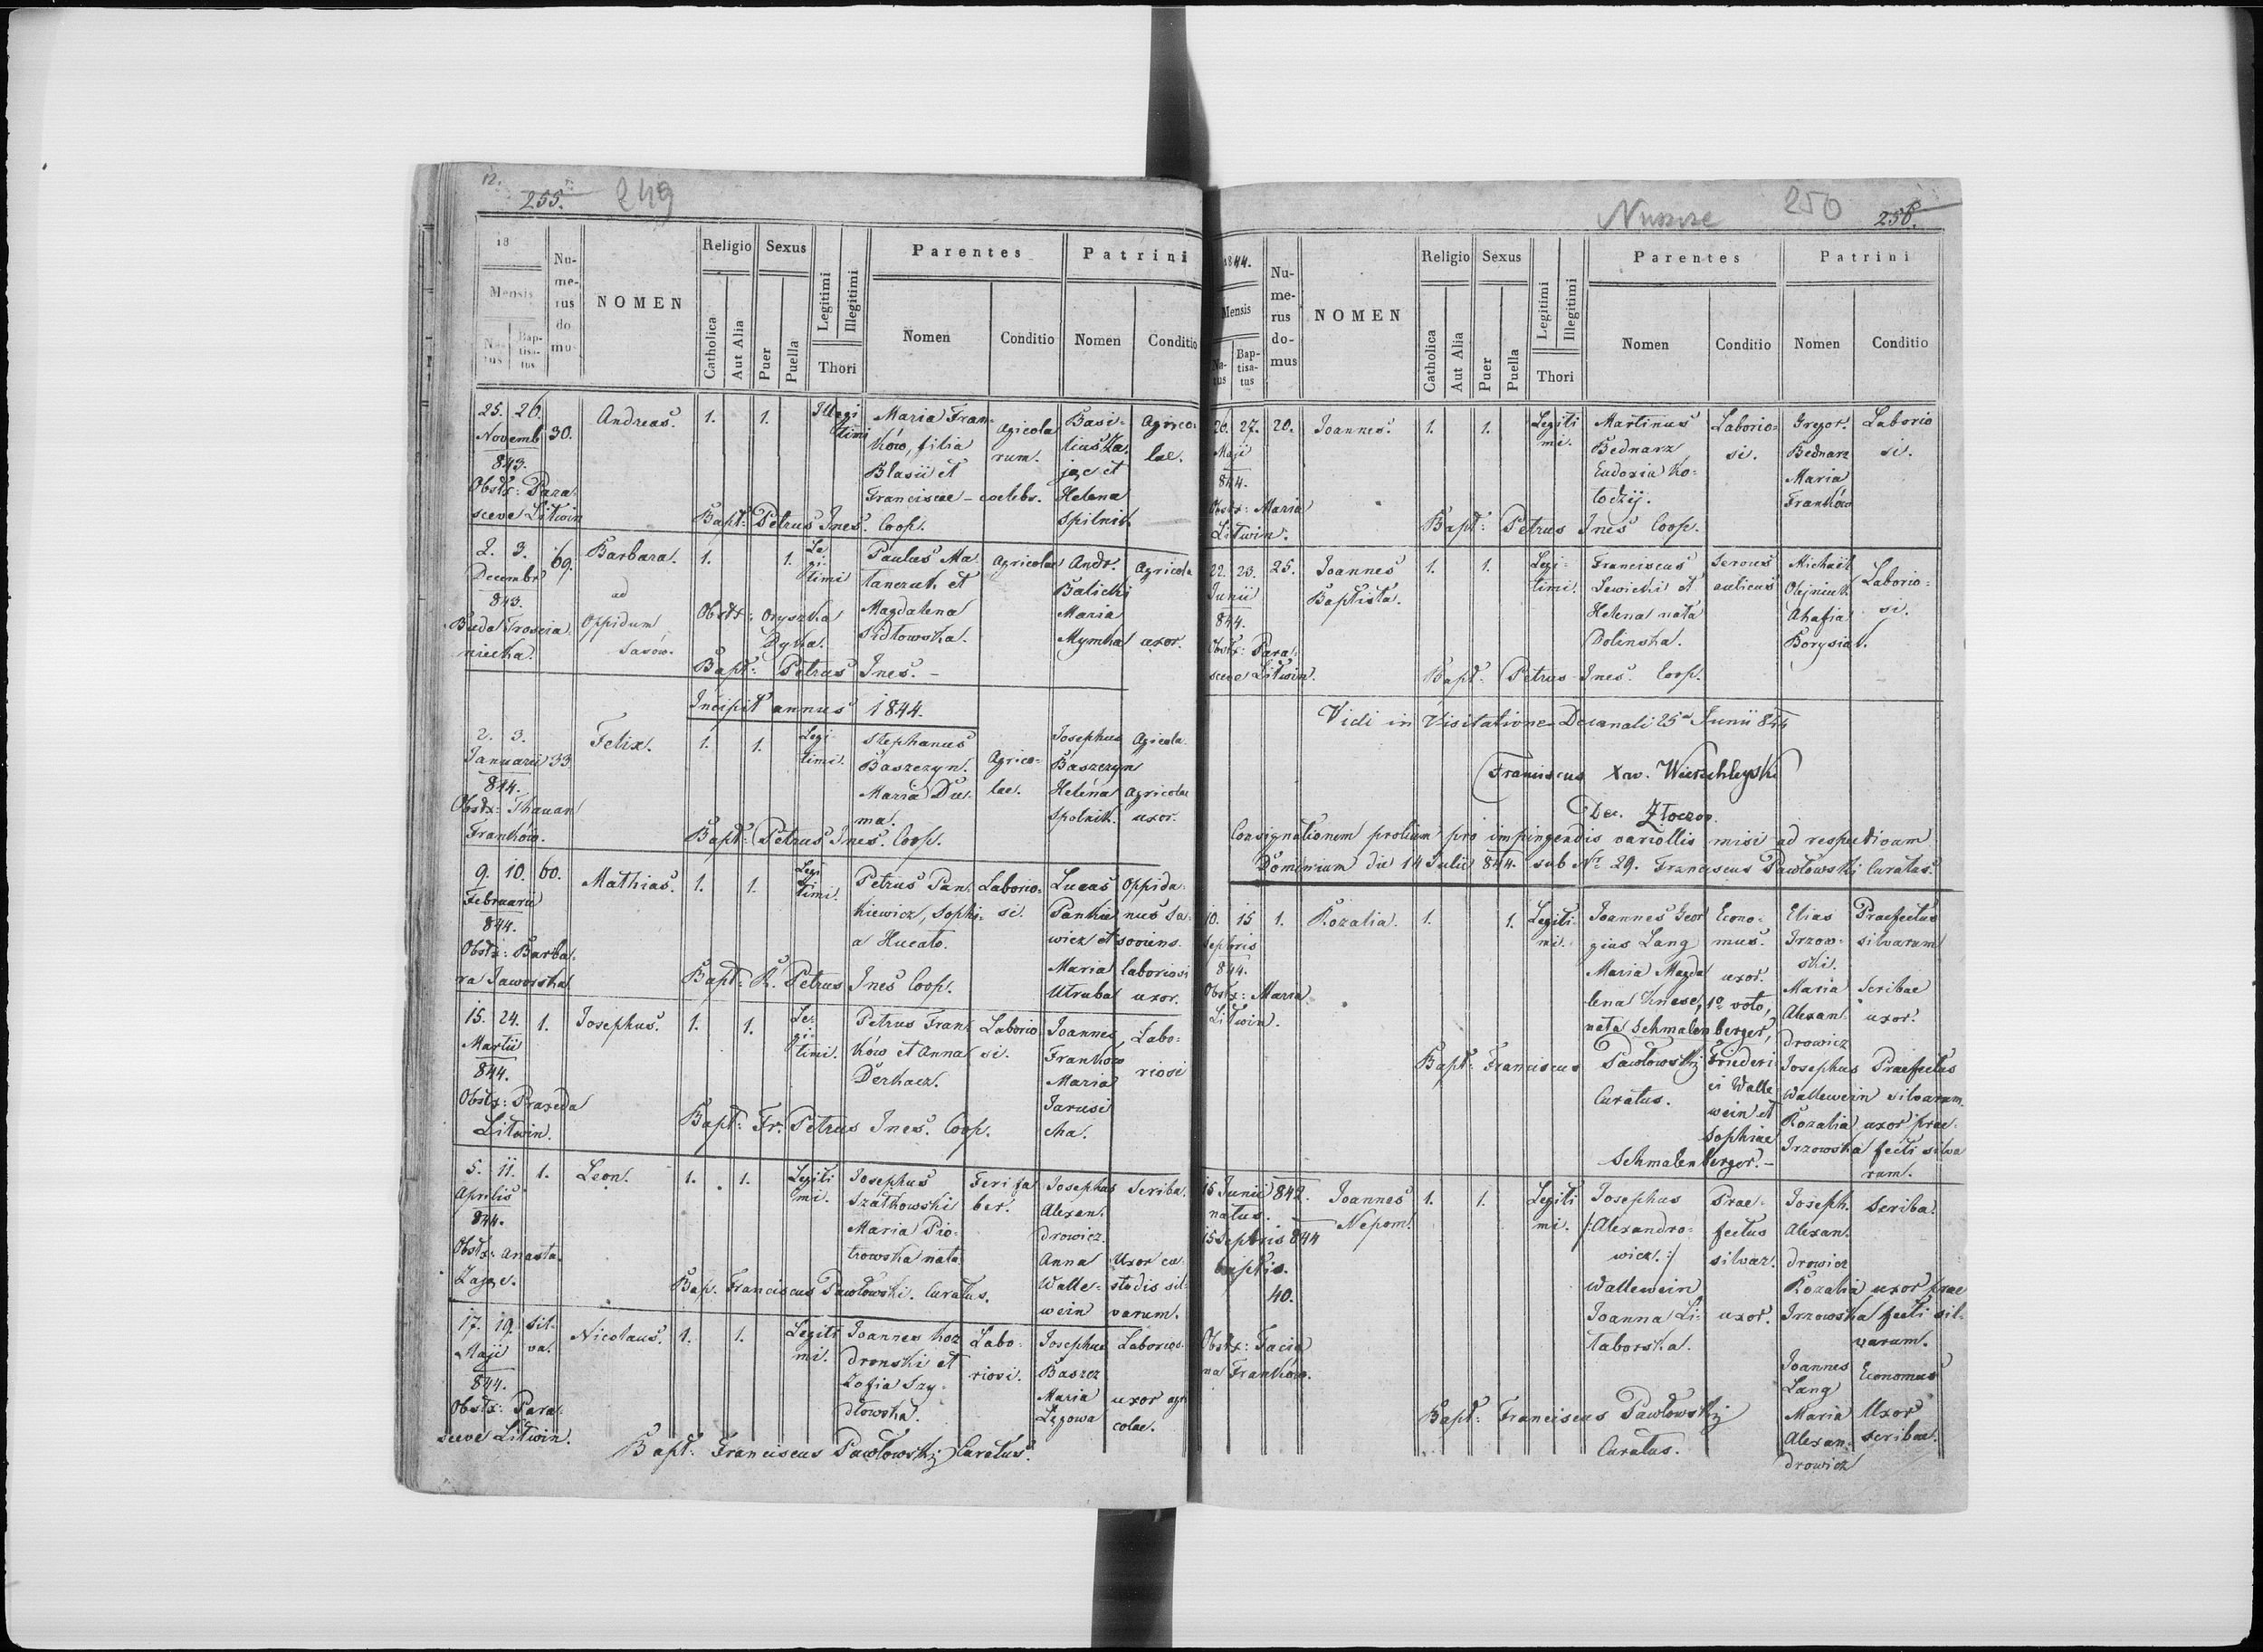 12.
255. 249
18
Mensis
Na-
tus
Bap-
tisa-
tus
Nu-
me-
rus
do-
mus
NOMEN
Religio
Catholica
Aut Alia
Sexus
Puer
Puella
Legitimi
Illegitimi
Thori
Parentes
Nomen
Conditio
Patrini
Nomen
Conditio
25. 26.
Novemb
843.
Obstx: Para
sceve Litwin
30.
Andreas.
1.
1.
Illegi
timi
Maria Fran-
ków, filia
Blasii et
Franciscae - coelebs.
Agricola
rum.
Basi-
lius Za-
jąc et
Helena
Spilnik
Agrico-
lae.
Bapt: Petrus Ines. Coop.
2. 3.
Decembr
843.
Buda Troscia
niecka.
69.
Barbara.
ad
Oppidum
Sasów.
1.
1.
Le
gi-
timi
Paulus Ma
tanczuk et
Magdalena
Sidłowska.
Agricolae
Andr.
Balicki
Maria
Mymka
Agricola
uxor.
Obstx: Oryszka
Dyka.
Bapt: Petrus Ines. -
Incipit annus 1844.
2. 3.
Januarii
844.
Obstx: Thauan
Franków.
33
Felix.
1.
1.
Legi-
timi.
Stephanus
Baszczyn.
Maria Du-
ma.
Agrico-
lae.
Josephus
Baszczyn
Helena
Spolnik.
Agricola
Agricolae
uxor.
Bapt: Petrus Ines. Coop.
9. 10.
Februarii
844.
Obstx: Barba-
ra Jaworska
60.
Mathias.
1.
1.
Legi
timi.
Petrus Pan-
kiewicz, Sophi-
a Hucało.
Laborio-
si.
Lucas
Pankie
wicz et
Maria
Utraba
Oppida-
nus Sa-
soviens.
laboriosi
uxor.
Bapt: R. Petrus Ines Coop.
15. 24.
Martii
844.
Obstx: Praxeda
Litwin.
1.
Josephus.
1.
1.
Le-
gi-
timi.
Petrus Fran
ków et Anna
Derkacz.
Laborio
si.
Joannes
Franków
Maria
Jarusi
cha.
Labo-
riosi
Bapt: Fr. Petrus Ines. Coop.
5. 11.
Aprilis
844.
Obstx: Anasta.
Zając.
1.
Leon.
1.
1.
Legiti
mi.
Josephus
Szatkowski
Maria Pio-
trowska nata
Feri fa
ber.
Josephus
Alexan-
drowicz.
Anna
Walle-
wein
Scriba.
Uxor cu
stodis sil-
varum.
Bap. Franciscus Pawłowski. Curatus.
17. 19.
Maji
844.
Obstx: Para
sceve Litwin.
sil-
va.
Nicolaus.
1.
1.
Legiti
mi.
Joannes Koz
dronski et
Zofia Szy-
dłowska.
Labo-
riosi.
Josephus
Baszcz
Maria
Lęgowa
Laborios.
uxor agri
colae.
Bapt: Franciscus Pawłowskij Curatus.
Nuszcze 250 256.
1844.
Mensis
Na-
tus
Bap-
tisa-
tus
Nu-
me-
rus
do-
mus
NOMEN
Religio
Catholica
Aut Alia
Sexus
Puer
Puella
Legitimi
Illegitimi
Thori
Parentes
Nomen
Conditio
Patrini
Nomen
Conditio
26. 27.
Maji
844.
Obstx: Maria
Litwin.
20.
Joannes.
1.
1.
Legiti
mi.
Martinus
Bednarz
Eudoxia Ko-
łodzij.
Laborio-
si.
Gregor.
Bednarz
Maria
Franków
Laborio
si.
Bapt: Petrus Ines Coop.
22. 23.
Junii
844.
Obstx: Para-
sceve Litwin.
25.
Joannes
Baptista.
1.
1.
Legi-
timi.
Franciscus
Lewicki et
Helena nata
Dolinska.
Servus
aulicus
Michail
Olejniuk.
Ahafia
Borysiak.
Laborio-
si.
Bapt: Petrus Ines. Coop.
Vidi in Visitatione Decanali 25a Junii 844
Franciscus Xav.
Dec. Złoczov.
Consignationem prolium pro impingendis variollis misi ad respectivam
Dominium die 14 Julii 844. sub Nr 29. Franciscus Pawłowski Curatus.
10. 15
Septbris
844.
Obstx: Maria
Litwin.
1.
Rozalia.
1.
1.
Legiti-
mi.
Joannes Geor
gius Lang
Maria Magda
lena Knese, 1o voto,
nata Schmalenberger,
Econo-
mus.
uxor.
Friederi
ci Walle
wein et
Sophiae
Schmalenberger. -
Elias
Irzow-
ski.
Maria
Alexan-
drowicz
Josephus
Wallewein
Rozalia
Irzowska
Praefectus
silvarum
Scribae
uxor.
Praefectus
silvarum.
uxor prae-
fecti silva
rum.
Bapt: Franciscus Pawłowskij
Curatus.
15 Junii 842.
natus.
15 Septbris 844
baptis.
40.
Obstx: Tacia
na Franków.
Joannes
Nepom.
1.
1.
Legiti
mi.
Josephus
/:Alexandro-
wicz.:/
Wallewein
Joanna Li-
taborska.
Prae-
fectus
silvar.
uxor.
Joseph.
Alexan-
drowicz
Rozalia
Irzowska
Joannes
Lang
Maria
Alexan-
drowicz
Scriba.
uxor prae
fecti sil-
varum.
Economus
Uxor
scribae.
Bapt: Franciscus Pawłowskij
Curatus.